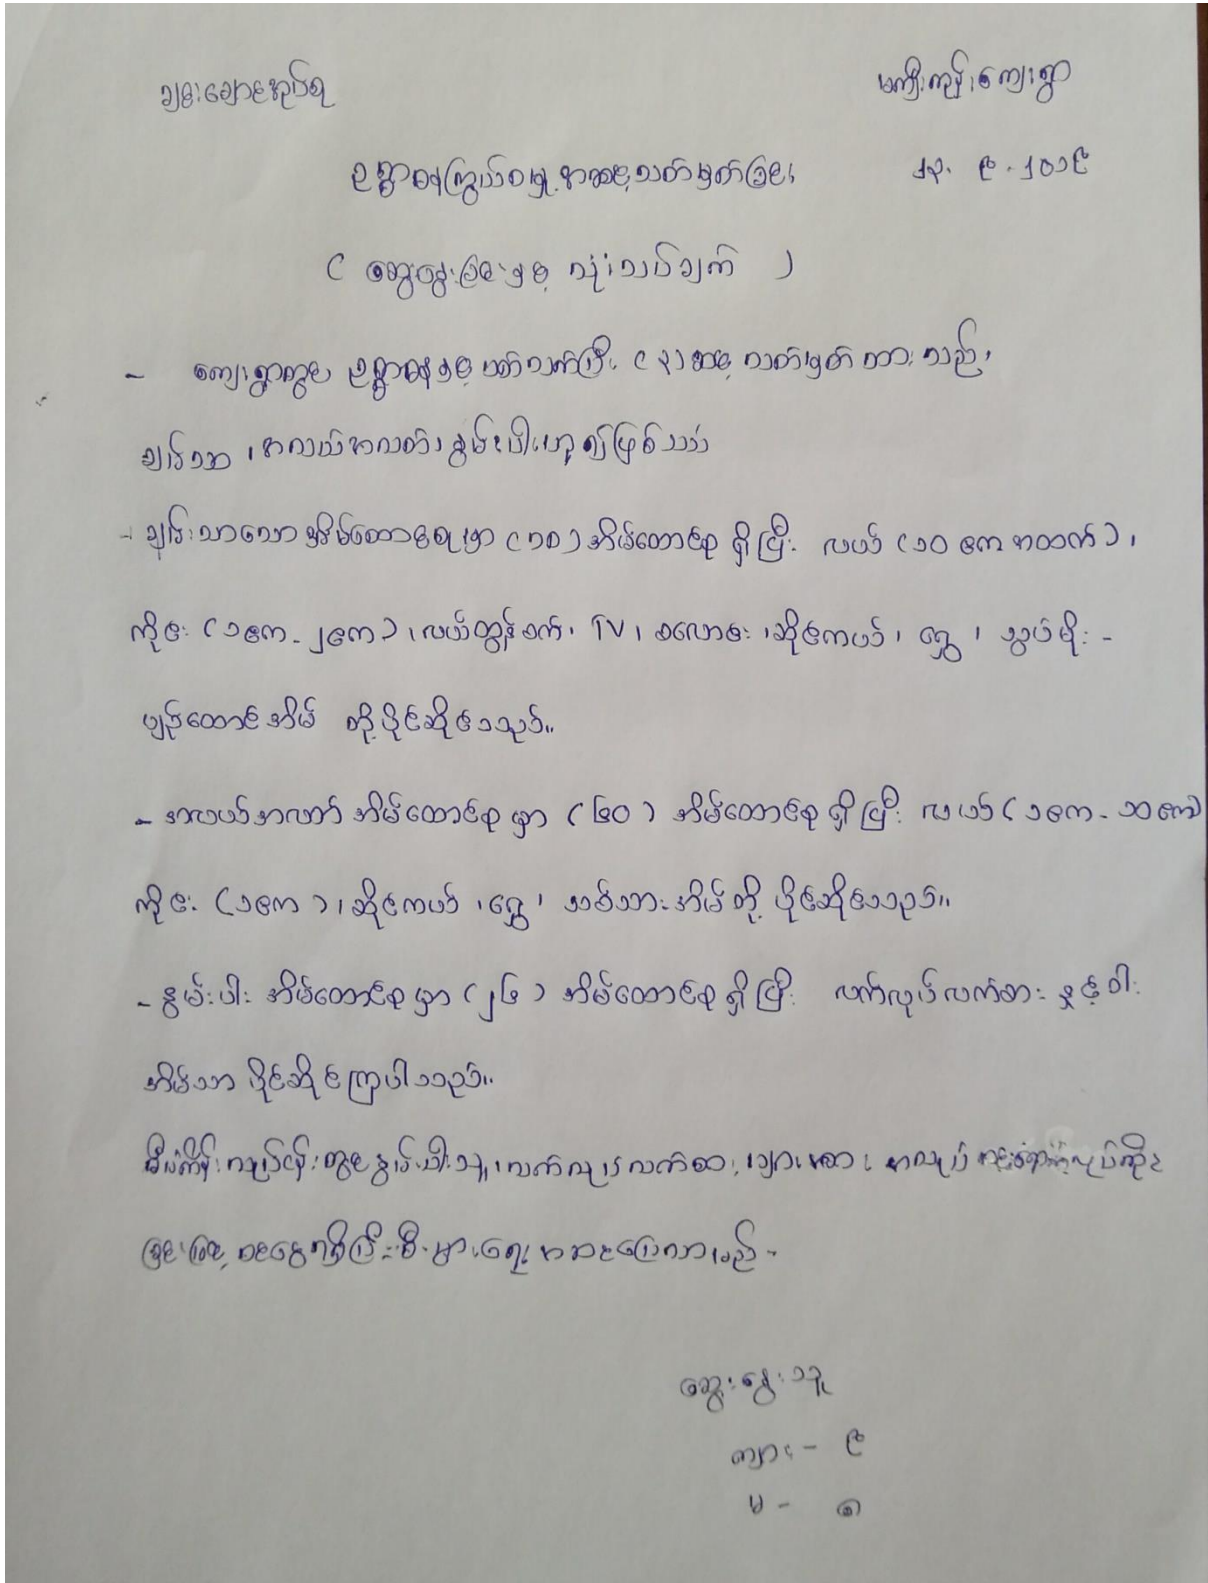 ချမ်းချောင်းအုပ်စု
မကျီးကုန်းကျေးရွာ
ဥစ္စာဓနကြွယ်ဝမှုအဆင့်သတ်မှတ်ခြင်း
၂၃. ၉. ၂၀၁၉
( ဆွေးနွေးခြင်းနှင့် သုံးသပ်ချက် )
- ကျေးရွာတွင် ဥစ္စာဓနနှင့်ပတ်သက်ပြီး ( ၃ ) ဆင့် သတ်မှတ် ထားသည်၊
ချမ်းသာ ၊ အလယ်အလတ်၊ နွမ်းပါးဟူ၍ဖြစ်သည်
- ချမ်းသာသော အိမ်ထောင်စုမှာ ( ၁၈ ) အိမ်ထောင်စု ရှိပြီး လယ် ( ၁၀ ဧကအထက် ) ၊
ကိုင်း ( ၁ဧက - ၂ဧက ) ၊ လယ်ထွန်စက်၊ TV ၊ စလောင်း ၊ ဆိုင်ကယ် ၊ ရွှေ ၊ သွပ်မိုး -
ပျဉ်ထောင်အိမ် တို့ပိုင်ဆိုင်သည်။
- အလယ်အလတ် အိမ်ထောင်စုမှာ ( ၆၀ ) အိမ်ထောင်စု ရှိပြီး လယ် ( ၁ဧက - ၁၀ဧက )
ကိုင်း ( ၁ဧက ) ၊ ဆိုင်ကယ် ၊ ရွှေ ၊ သစ်သားအိမ် တို့ ပိုင်ဆိုင်သည်။
- နွမ်းပါး အိမ်ထောင်စုမှာ ( ၂၆ ) အိမ်ထောင်စု ရှိပြီး လက်လုပ်လက်စား နှင့် ဝါး
အိမ်သာ ပိုင်ဆိုင်ကြပါသည်။
စီမံကိန်းလုပ်ငန်းတွင် နွမ်းပါးသူ ၊ လက်လုပ်လက်စား အလုပ်
ခြင်းဖြင့် ဝင်ငွေရရှိပြီး စီးပွားရေး အဆင်ပြေလာသည် -
ဆွေးနွေးသူ
ကျား - ၉
မ - ၈